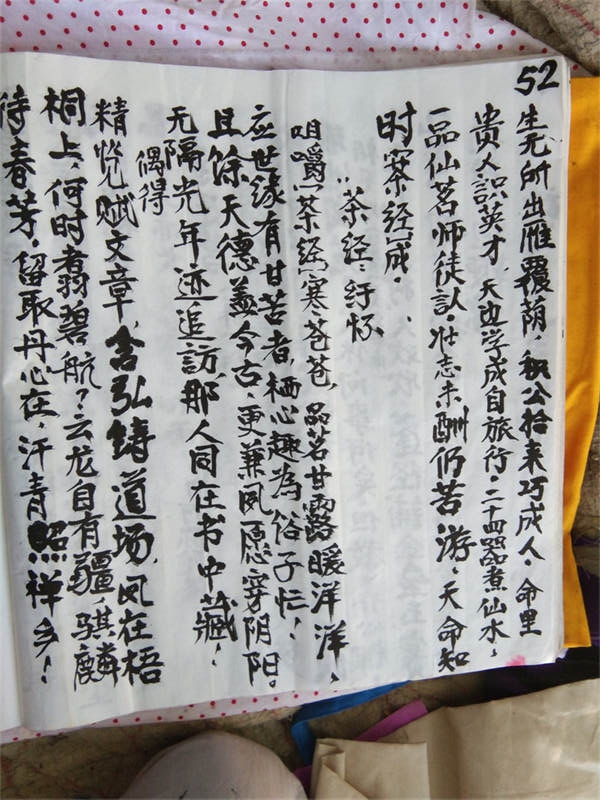 52
生无所出雁覆荫，积公拾来巧成人，命里
贵人识英才，天边学成自旅行，二十四器煮仙水，
一品仙茗师徒认，壮志未酬仍苦游，天命知
时寮经成。
茶经：纾怀
咀嚼茶经寒苍苍，品茗甘露暖洋洋，
应世缘有甘苦者，栖心趣为俗子忙！
且馀天德盖今古，更兼风愿穿阴阳。
无隔光年迹追访，那人同在书中藏！
偶得
精览赋文章，含弘铸道场，凤在梧
桐上，何时翥碧航？云龙自有疆，骐麟
待春芳，留取丹心在，汗青照禅乡！